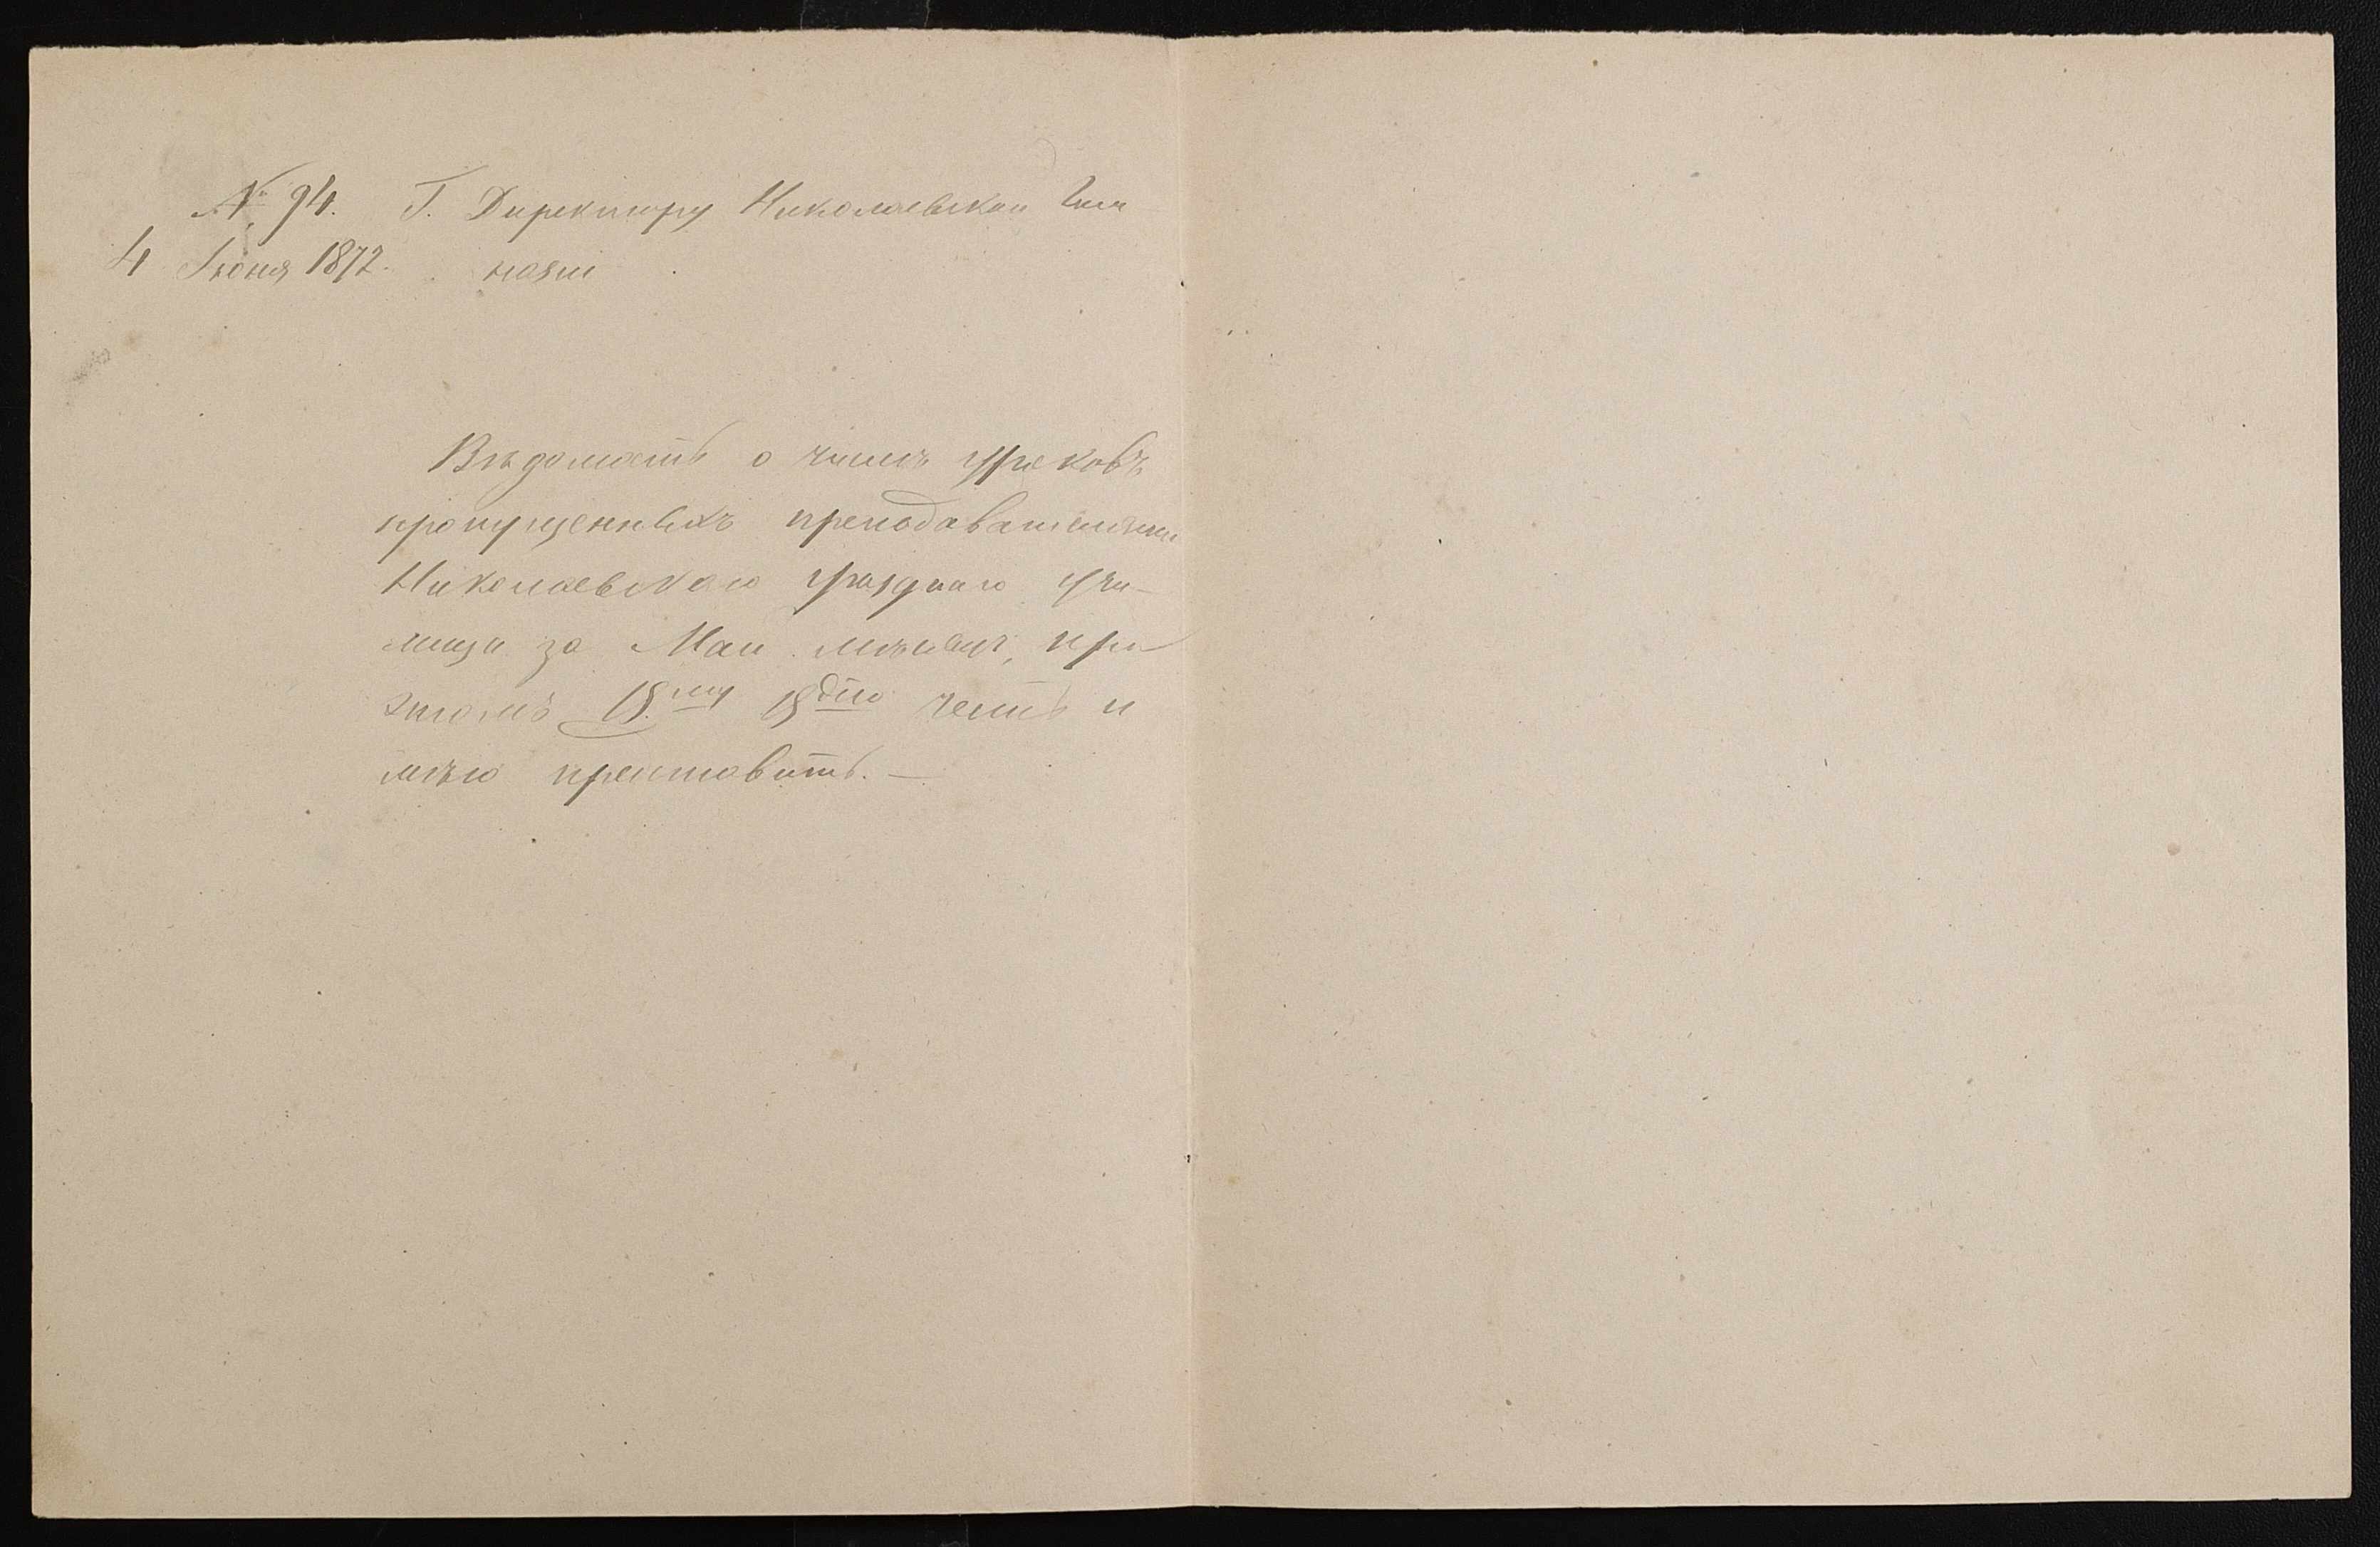 № 94. Г. Директору Николаевской Гим
4 Іюня 1872. назіи
Вѣдомость о числѣ уроковъ
пропущенныхъ преподавателями
Николаевскаго уѣзднаго учи-
лища за Май мѣсяцъ, при
этомъ В.му Вдію честь и
мѣю преставить. —